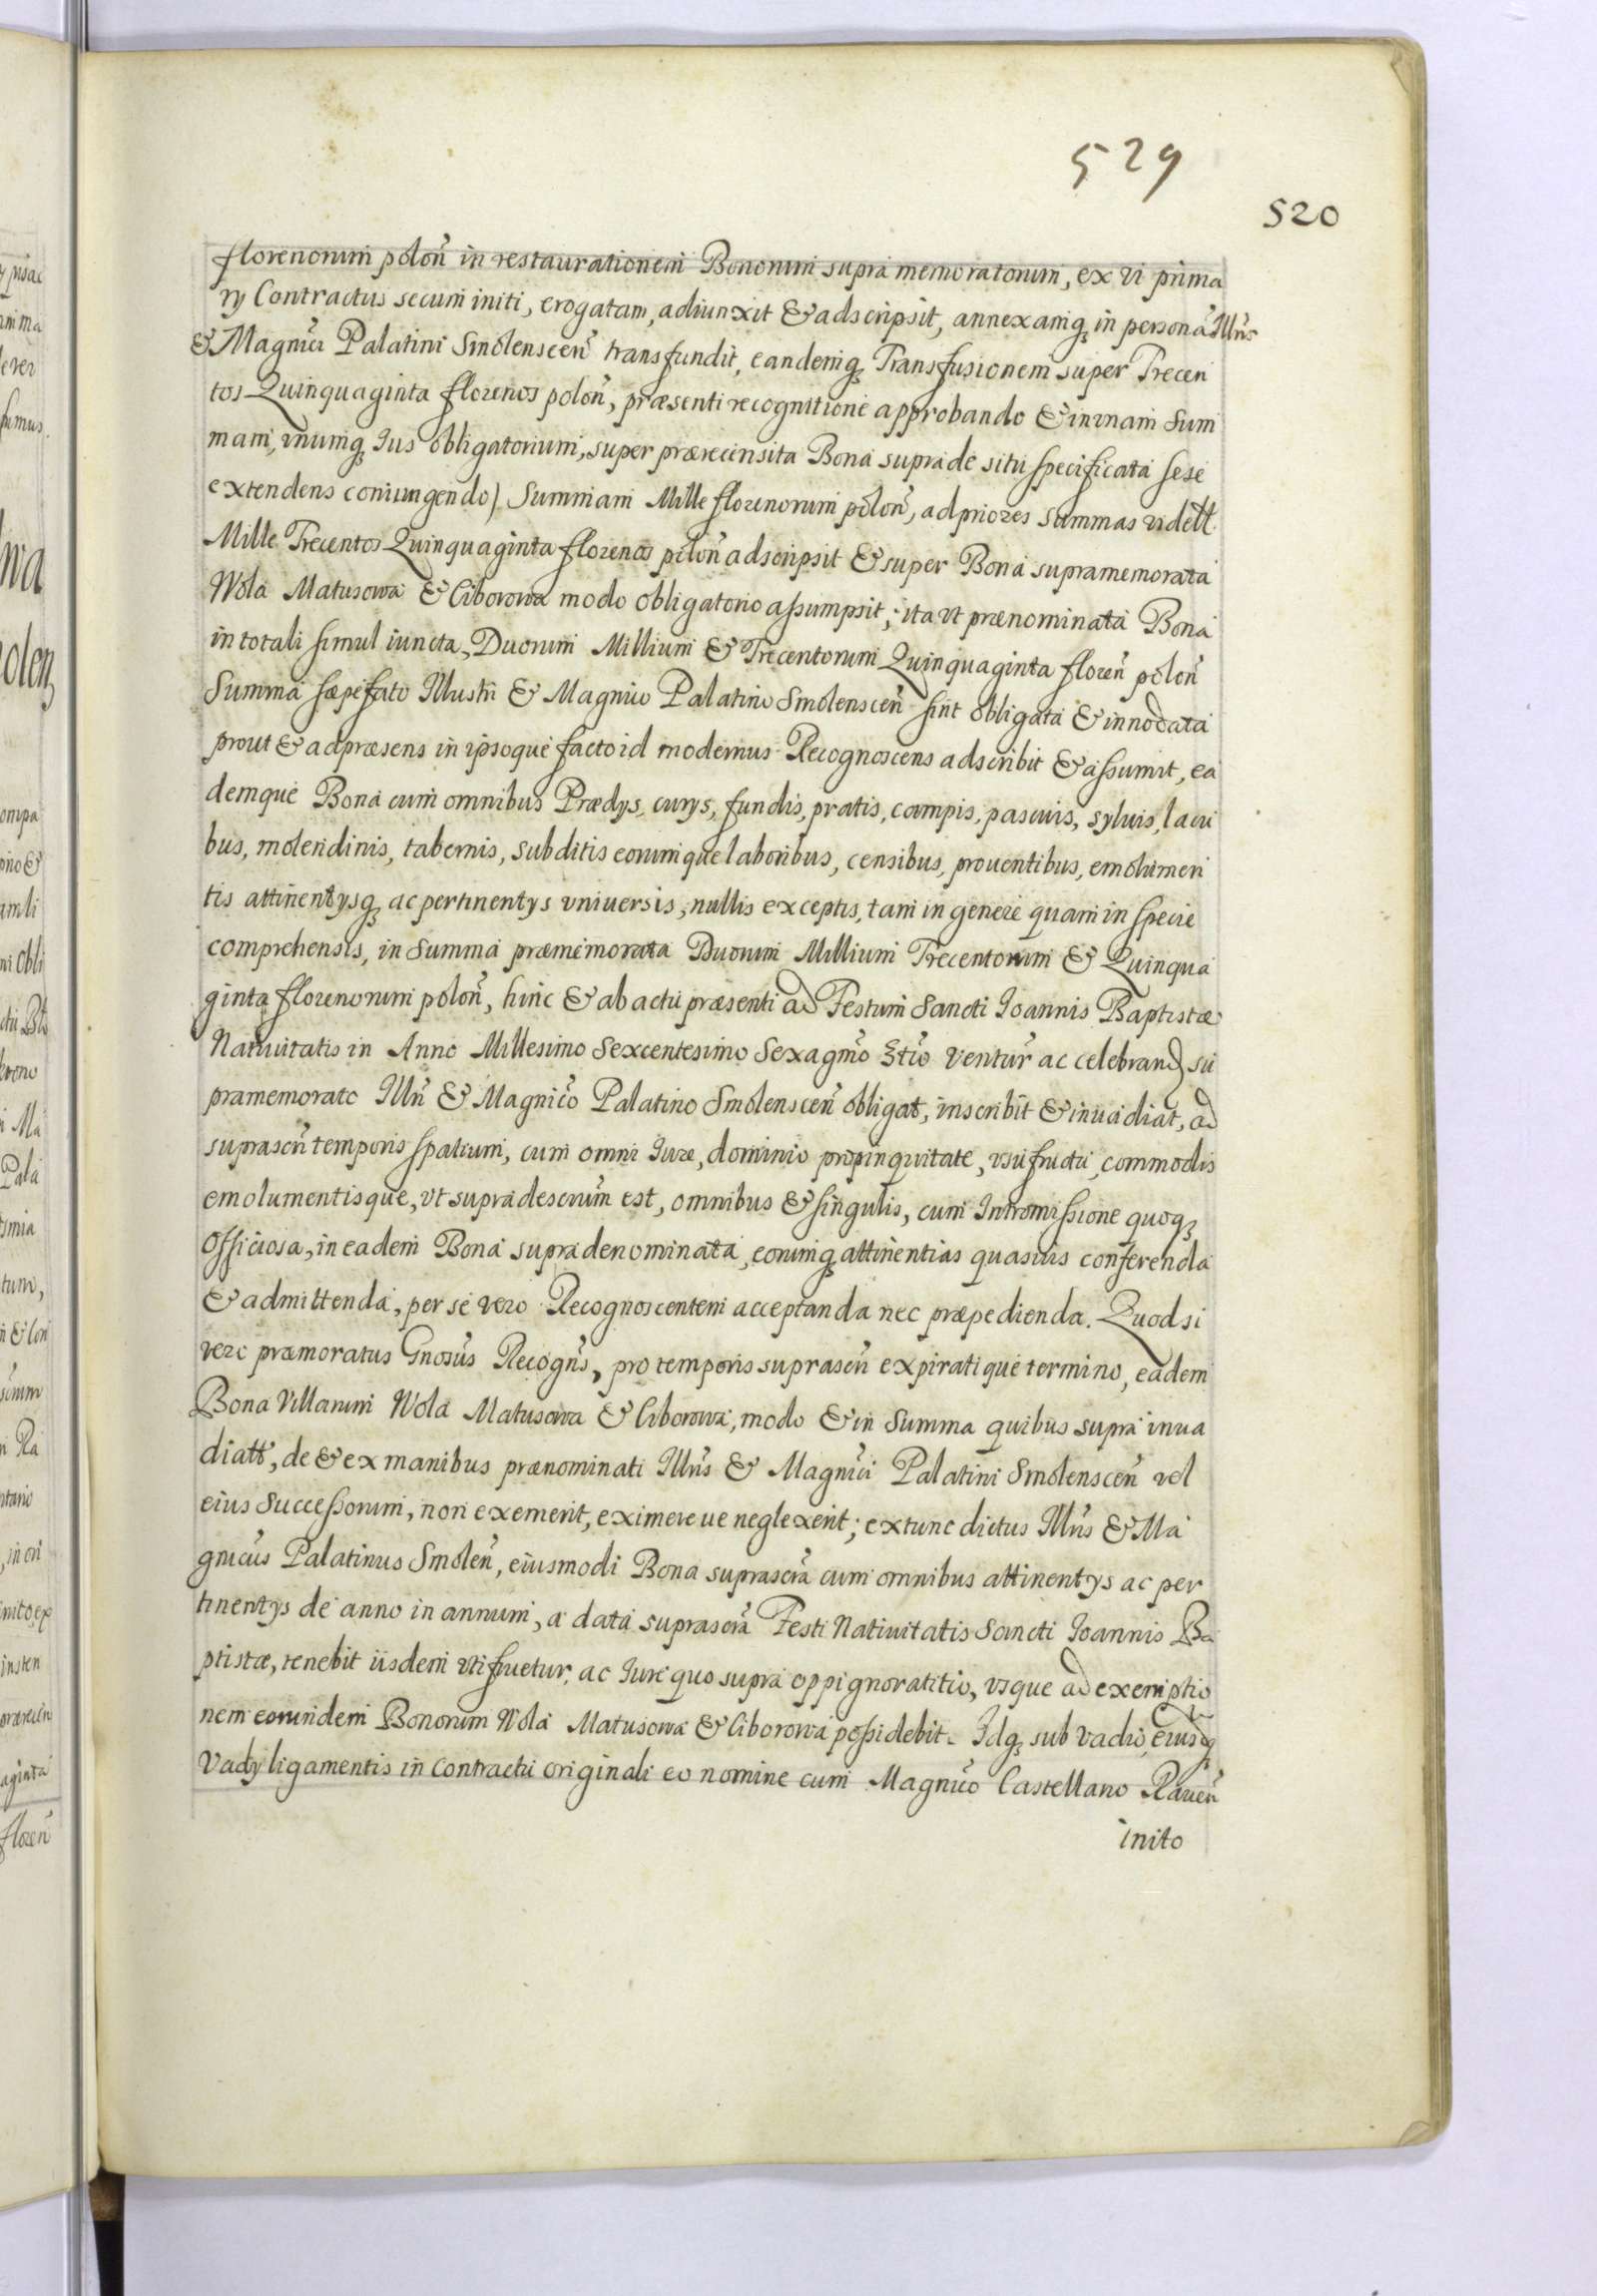 529
520
florenorum polon̄ in restaurationem Bonorum supra memoratorum, ex vi prima
rÿ Contractus secum initi, erogatam, adiunxit & adscripsit, annexamq; in persona Illris
& Magn̄ci Palatini Smolenscen̄ transfundit, eandemq; Transfusionem super Trecen
tos Quinquaginta florenos polon̄, præsenti recognitione approbando & in vnam Sum
mam, vnumq; Ius obligatorium, super prærecensita Bona supra de situ specificata sese
extendens coniungendo) Summam Mille florenorum polon̄, ad priores summas videlt
Mille Trecentos Quinquaginta florenos polon̄ adscripsit & super Bona supramemorata
Wola Matusowa & Ciborowa modo obligatorio assumpsit; ita vt prænominata Bona
in totali simul iuncta, Duorum Millium & Trecentorum Quinquaginta floren̄ polon̄
Summa sæpefato Illustri & Magn̄ico Palatino Smolenscen̄ sint obligata & innodata
prout & ad præsens in ipsoque facto id modernus Recognoscens adscribit & assumit, ea
demque Bona cum omnibus Prædÿs, curÿs, fundis, pratis, campis, pascuis, syluis, lacu
bus, molendinis, tabernis, subditis eorumque laboribus, censibus, prouentibus, emolumen
tis attinentÿsq; ac pertinentÿs vniuersis, nullis exceptis, tam in genere quam in specie
comprehensis, in Summa præmemorata Duorum Millium Trecentorum & Quinqua
ginta florenorum polon̄, hinc & ab actu præsenti ad Festum Sancti Ioannis Baptistæ
Natiuitatis in Anno Millesimo Sexcentesimo Sexagmo 3tio ventur̄ ac celebrand su
pramemorato Illri & Magnico Palatino Smolenscen̄ obligat, inscribit & inuadiat, ad
suprascri temporis spatium, cum omni Iure, dominio propinquitate, vsufructu, commodis
emolumentisque, vt supradescrum est, omnibus & singulis, cum Intromissione quoq;
Officiosa, in eadem Bona supradenominata, eorumq; attinentias quasuis conferenda
& admittenda, per se vero Recognoscentem acceptanda nec præpedienda. Quod si
vero præmoratus Gnosus Recogns, pro temporis suprascri expiratique termino, eadem
Bona Villarum Wola Matusowa & Ciborowa, modo & in Summa quibus supra inua
diatt, de & ex manibus prænominati Illris & Magn̄ci Palatini Smolenscen̄ vel
eius Successorum, non exemerit, eximereue neglexerit; extunc dictus Illris & Ma
gnicus Palatinus Smolen̄, eiusmodi Bona suprascra cum omnibus attinentÿs ac per
tinentÿs de anno in annum, a data suprascra Festi Natiuitatis Sancti Ioannis Ba
ptistæ, tenebit iisdem vtifruetur, ac Iure quo supra oppignoratitio, vsque ad exemptio
nem eorundem Bonorum Wola Matusowa & Ciborowa possidebit. Idq; sub vadio, eiusdq
Vadÿ ligamentis in Contractu originali eo nomine cum Magnico Castellano Rauen̄
inito